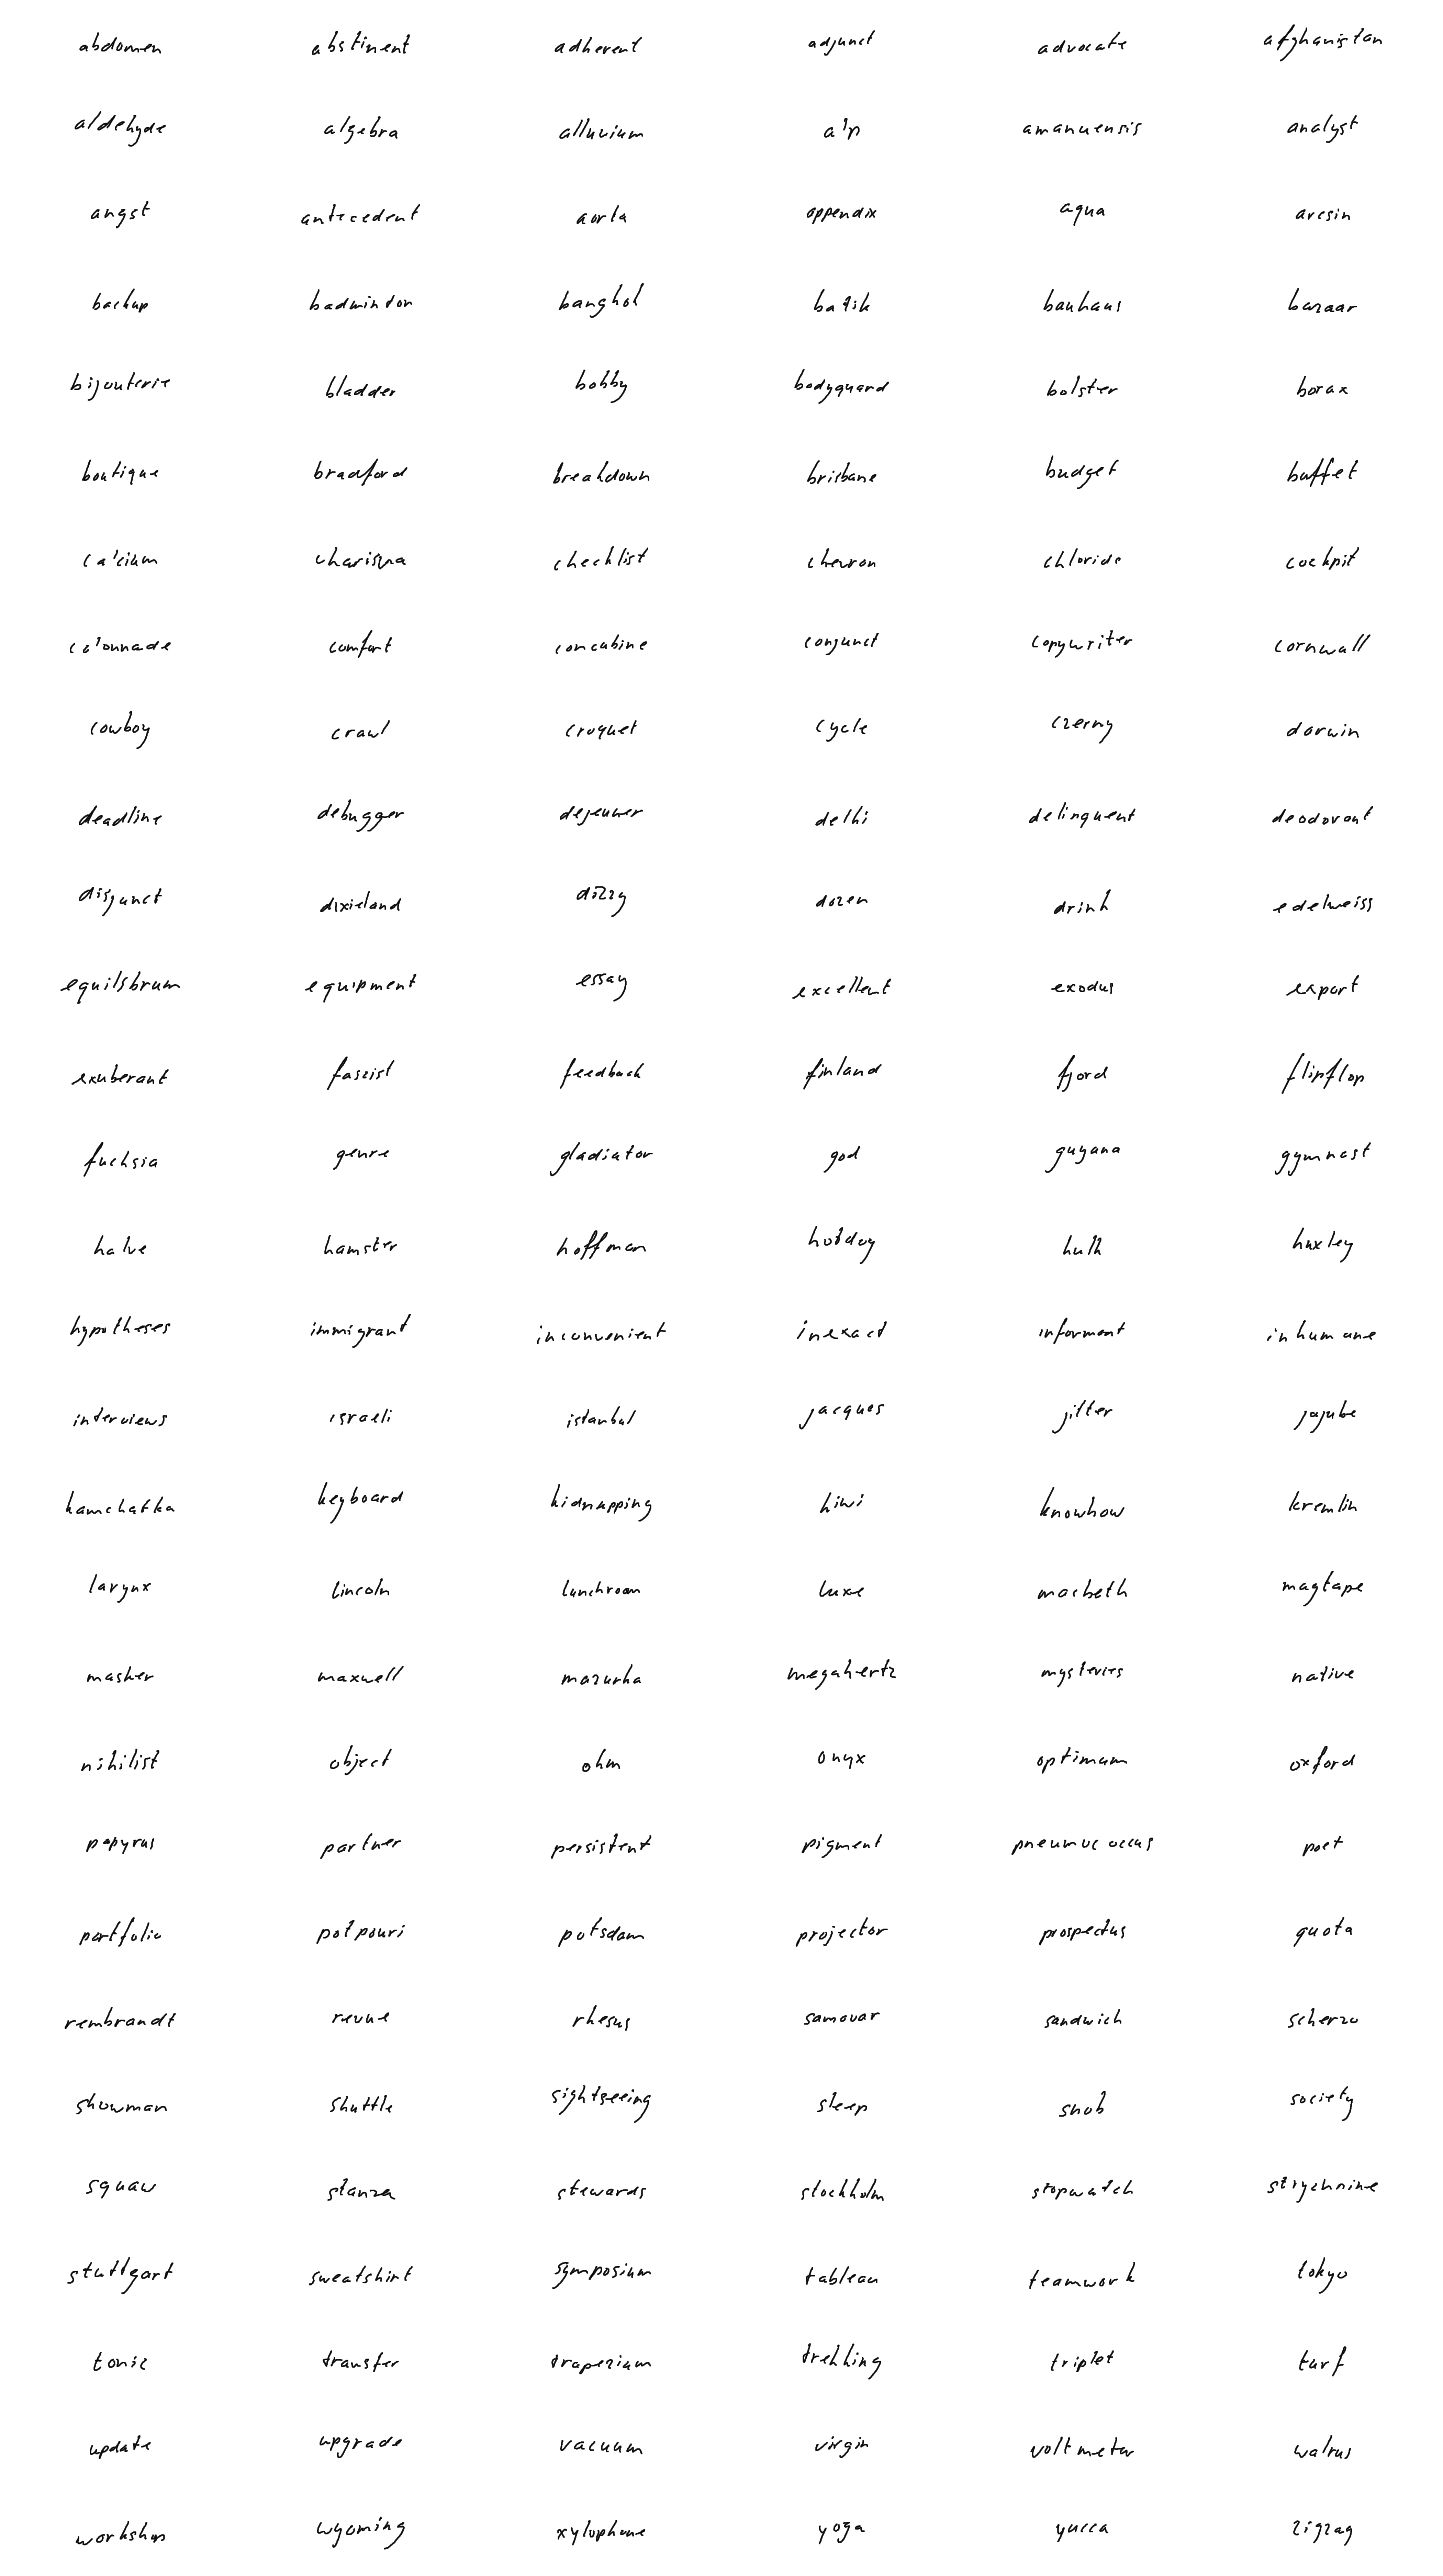 abdomen abstinent adherent adjunct advocate afghanistan
aldehyde algebra alluvium alp amanuensis analyst
angst antecedent aorta appendix aqua arcsin
backup badminton bangkok batik bauhaus bazaar
bijouterie bladder bobby bodyguard bolster borax
boutique bradford breakdown brisbane budget buffet
calcium charisma checklist chevron chloride cockpit
colonnade comfort concubine conjunct copywriter cornwall
cowboy crawl croquet cycle czerny darwin
deadline debugger dejeuner delhi delinquent deodorant
disjunct dixieland dizzy dozen drink edelweiss
equilibrum equipment essay excellent exodus export
exuberant faszist feedback finland fjord flipflop
fuchsia genre gladiator god guyana gymnast
halve hamster hoffman hotdog hulk huxley
hypotheses immigrant inconvenient inexact informant inhumane
interviews israeli istanbul jacques jitter jajube
kamchatka keyboard kidnapping kiwi knowhow kremlin
larynx lincoln lunchroom luxe macbeth magtape
masker maxwell mazurka megahertz mysteries native
nihilist object ohm onyx optimum oxford
papyrus partner persistent pigment pneumococcus poet
portfolio potpouri potsdam projector prospectus quota
rembrandt revue rhesus samovar sandwich scherzo
showman shuttle sightseeing sleep snob society
squaw stanza stewards stockholm stopwatch strychnine
stuttgart sweatshirt symposium tableau teamwork tokyo
tonic transfer trapezium trekking triplet turf
update upgrade vacuum virgin voltmeter walrus
workshop wyoming xylophone yoga yucca zigzag